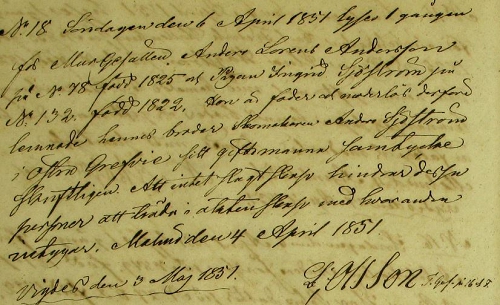 No. 18 Söndagen den 6 April 1851 lyses 1 gången
för MurGesällen Anders Lorens Andersson
på No 78 född 1825 och Pigan Ingrid Sjöström på
No. 132. född 1822. Hon är fader och moderlös derföre
lemnade hennes broder Skomakaren Anders Sjöström
i Östra Grefvie sitt giftomanna samtycke
skriftligen. Att intet slägtskap hindrar dessa
personer att träda i äktenskap med hvarandra
intygar. Malmö den 4 April 1851
Vigde den 3 Maj 1851.
Olsson